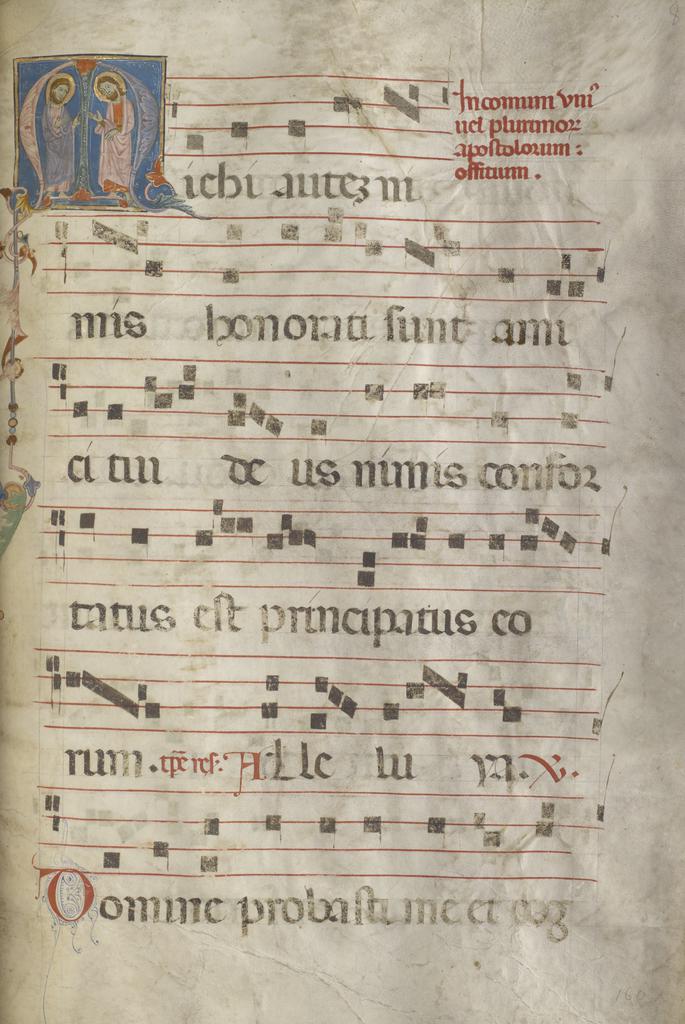 In comum vniꝰ
uel plurimoꝝ
apostolorum :
offitium .
Michi autez ni
mis honorati sunt ami
ci tui de us nimis confor
tatus est principatus eo
rum. tp̄e res: Alle lu ya. V.
Domine probasti me et cog
160